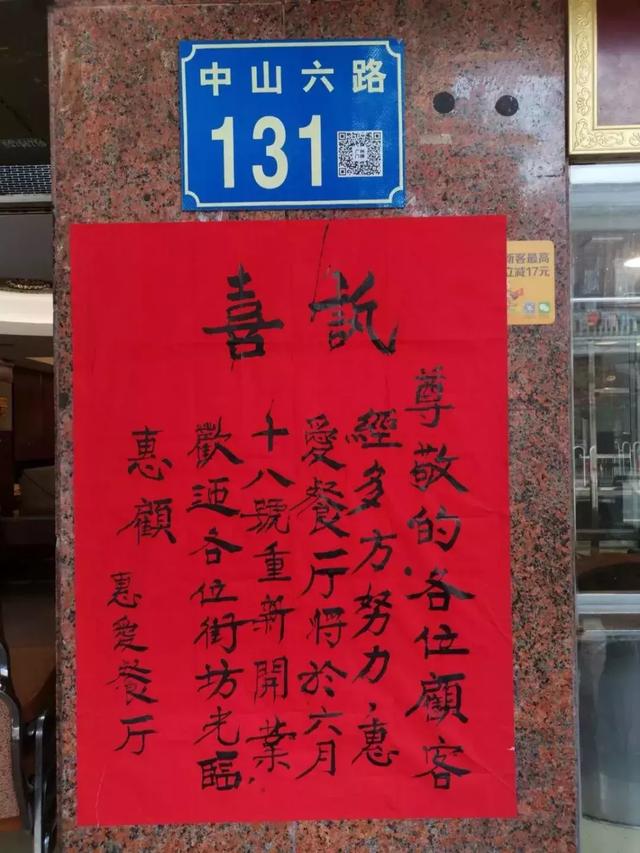 中山六路
131
喜訊
尊敬的各位顧客
經多方努力，惠
愛餐厅將於六月
十八號重新開業，
歡迎各位街坊光臨
惠顧
惠愛餐厅
新客最高
立减17元